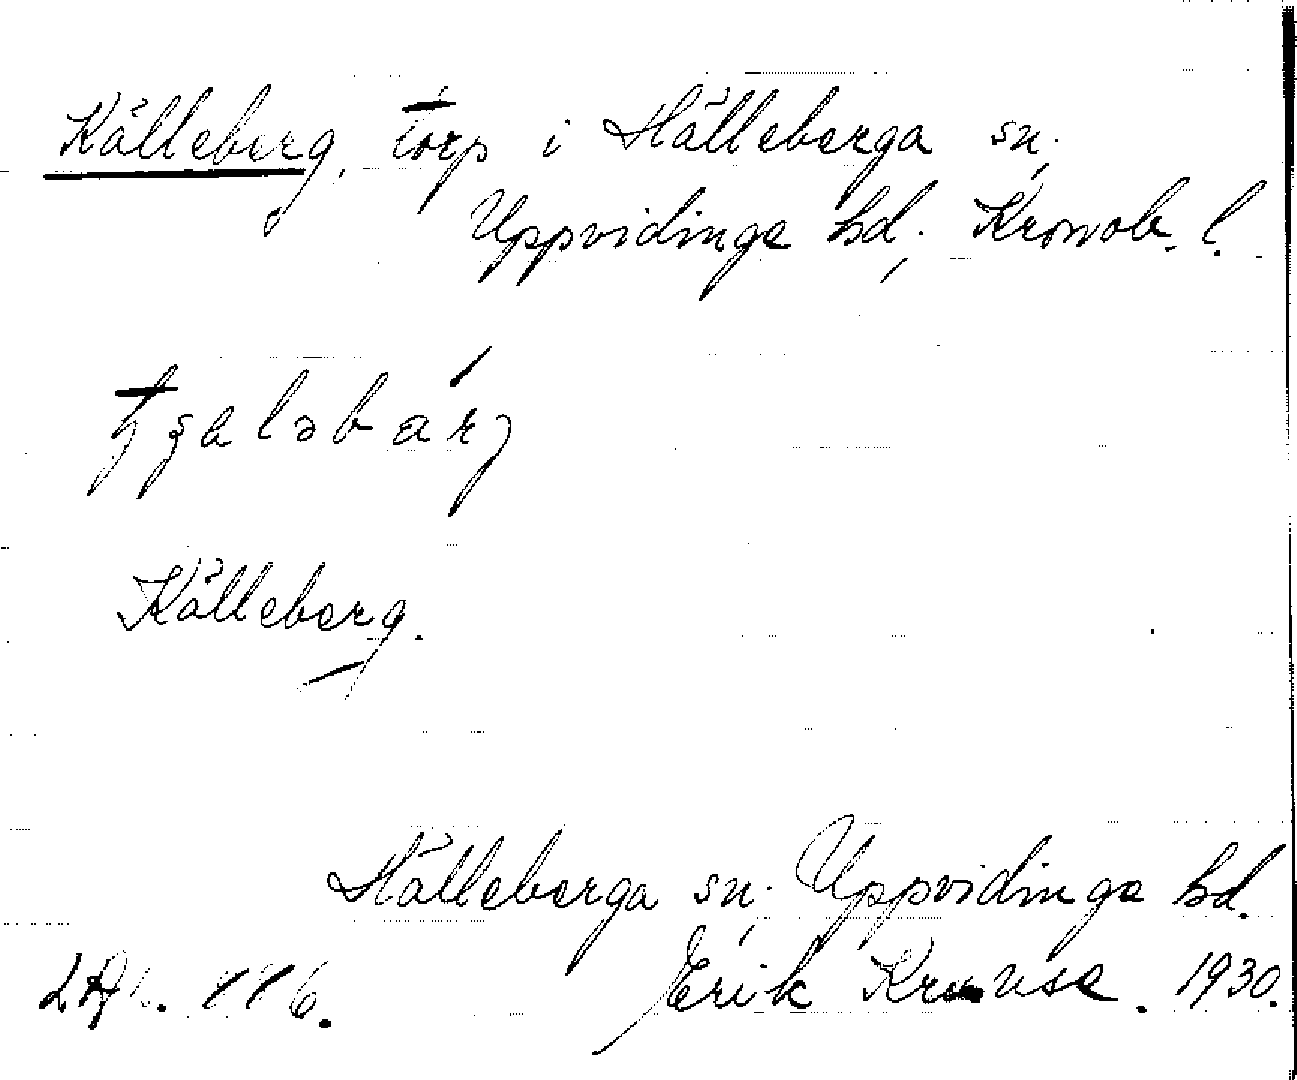 Källeberg, torp i Hälleberga sn.
Uppvidinge hd, Kronob. l.
Källeberg.
Hälleberga sn, Uppvidinge hd.
Erik Kruuse. 1930.